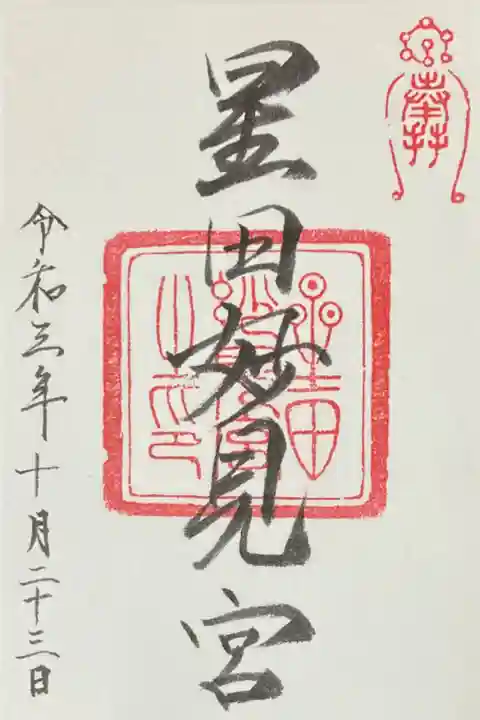 奉拝
星田妙見宮
令和三年十月二十三日